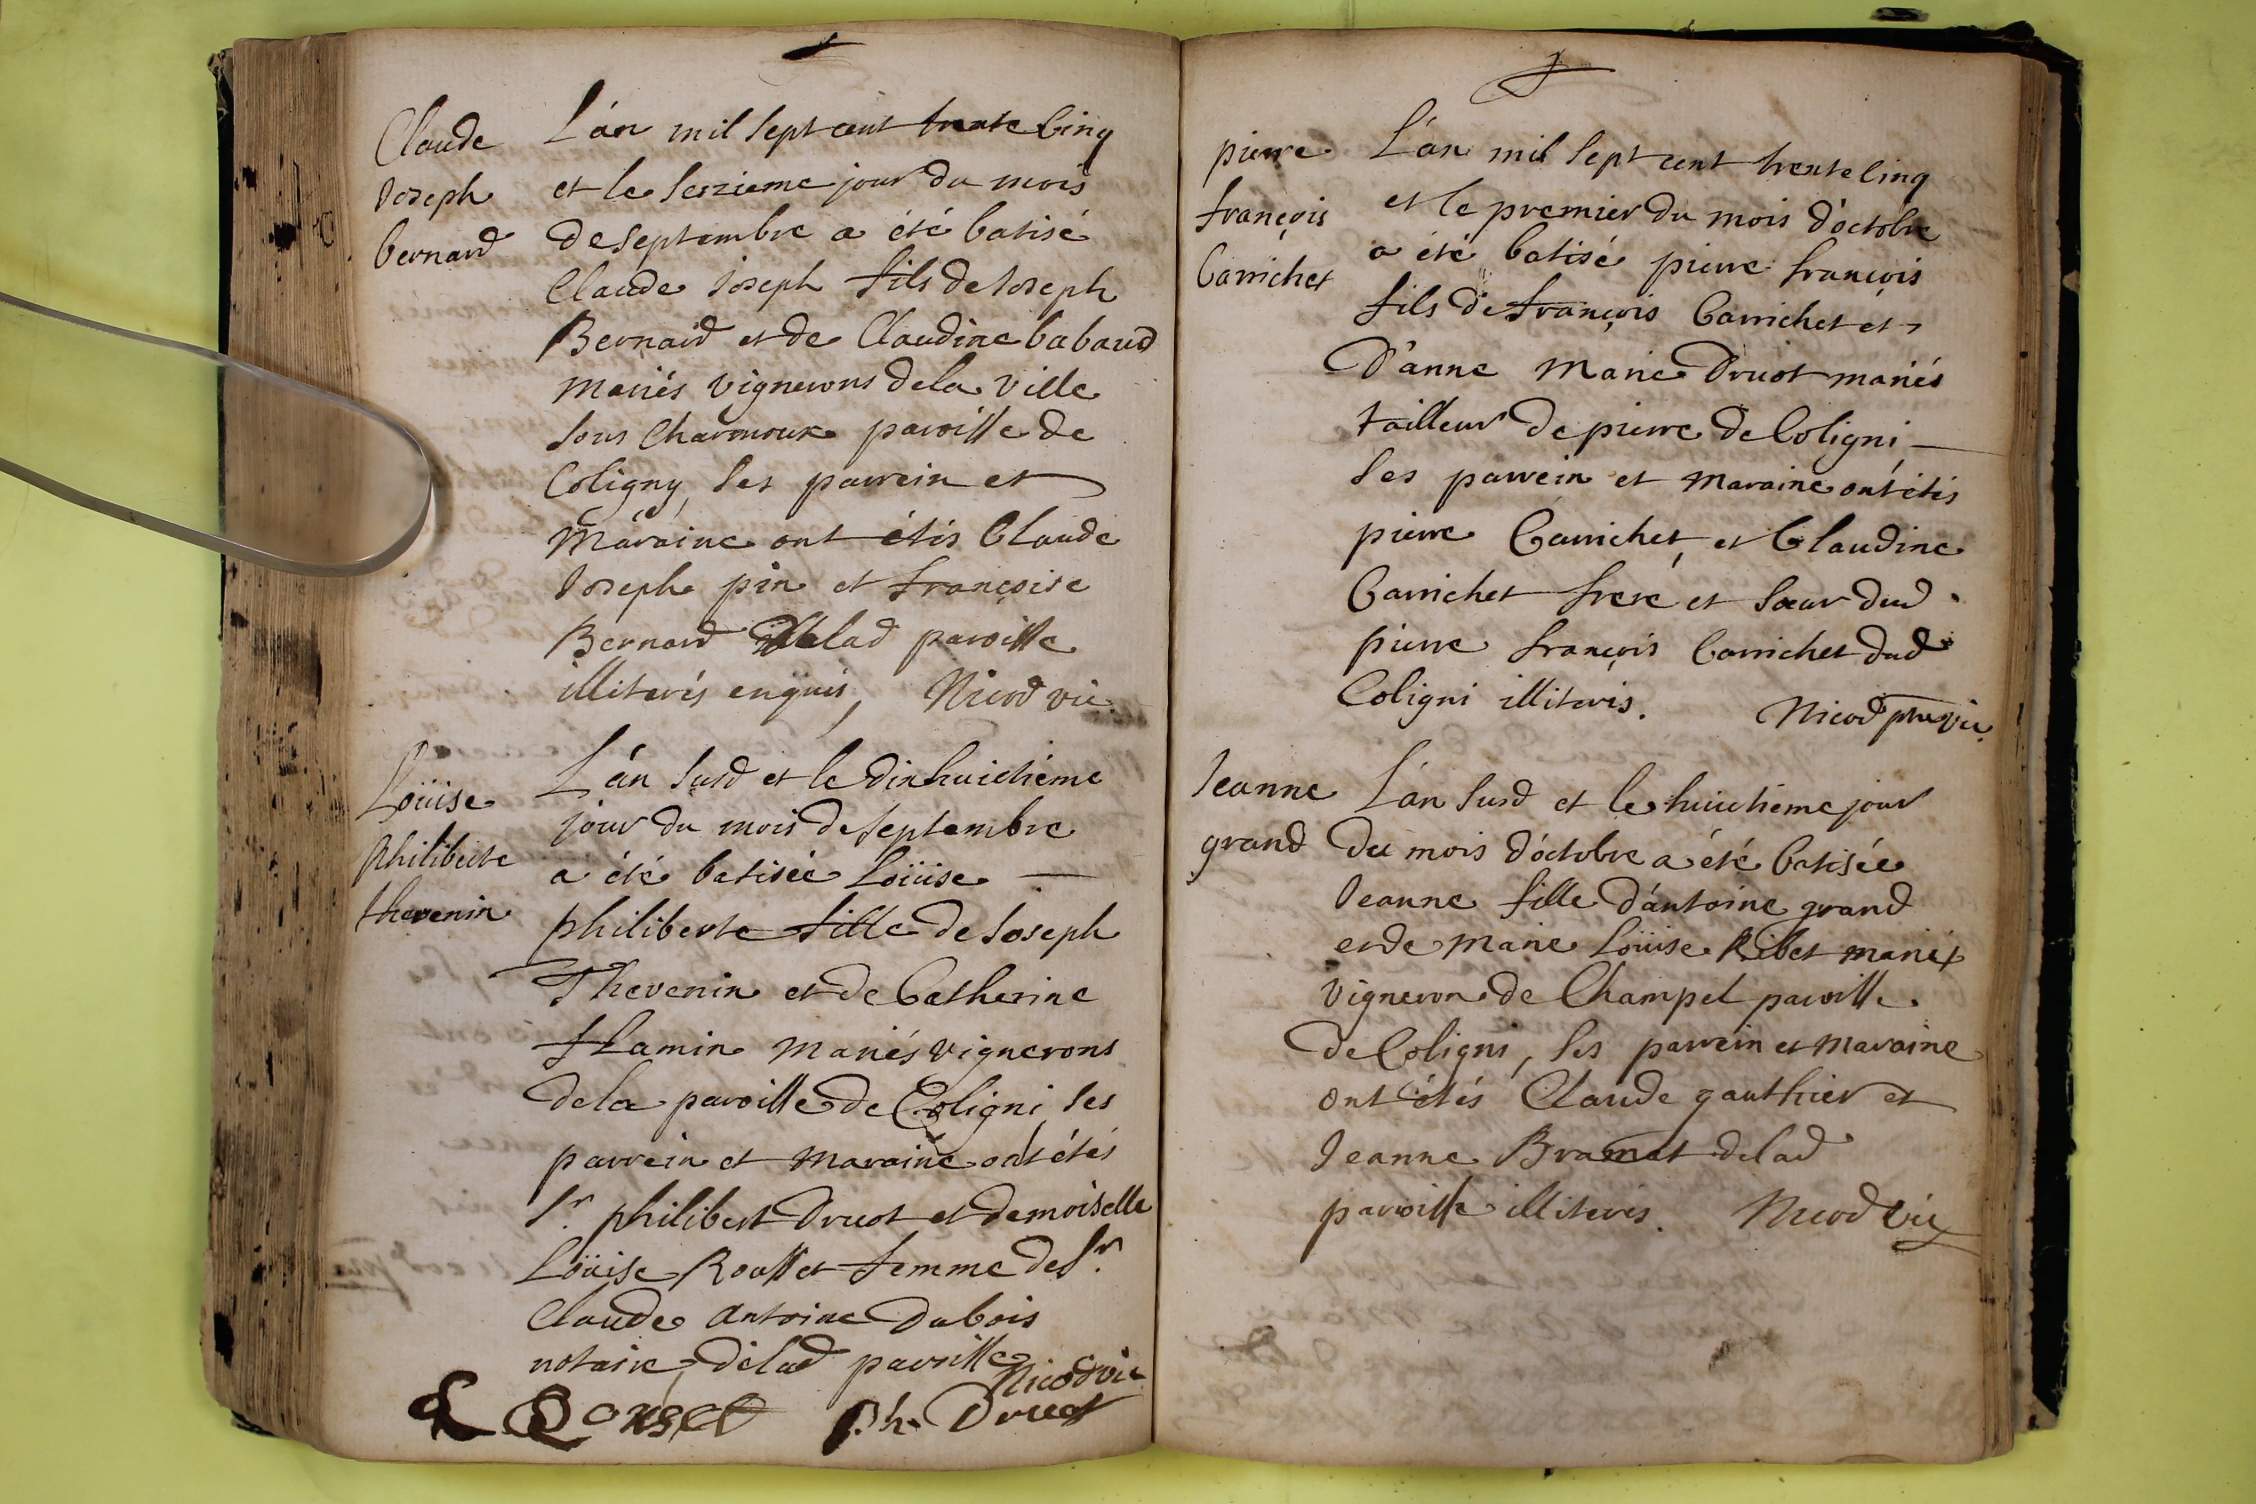 Claude
Joseph
bernard
L'an mil sept cent trente cinq
et le seizieme jour du mois
de septembre a été batisé
Claude Joseph fils de Joseph
Bernard et de Claudine babaud
mariés vignerons de la ville
sous Charmoux paroisse de
Coligny, ses parrein et
maraine ont étés Claude
Joseph pin et françoise
Bernard delad paroisse
illiterés enquis, Nicod vic
Loüise
philiberte
thevenin
L'an susd et le dixhuictiéme
jour du mois de septembre
a été batisée Loüise
philiberte fille de Joseph
Thevenin et de Catherine
flamin mariés vignerons
de la paroisse de Coligni ses
parrein et maraine ont étés
Sr. philibert Druot et demoiselle
Loüise Rousset femme de Sr.
Claude antoine Dubois
notaire, delad paroisse
Nicod vic
L Rouset Ph. Druot
pierre
françois
Carrichet
L'an mil sept cent trente cinq
et le premier du mois d'octobre
a été batisé pierre françois
fils de françois Carrichet et
D'anne Marie Druot mariés
tailleur de pierre de Coligni
ses parrein et maraine ont étés
pierre Carrichet, et Claudine
Carrichet frere et soeur dud
pierre françois Carrichet dud
Coligni illiteris. Nicod ptre vic.
Jeanne
grand
L'an susd et le huictiéme jour
du mois d'octobre a été batisée
Jeanne fille d'antoine grand
et de Marie Loüise Ribet mariés
vigneron de Champel paroisse
de Coligni, ses parrein et maraine
ont étés Claude gauthier et
Jeanne Bramet delad
paroisse illiteris. Nicod vic